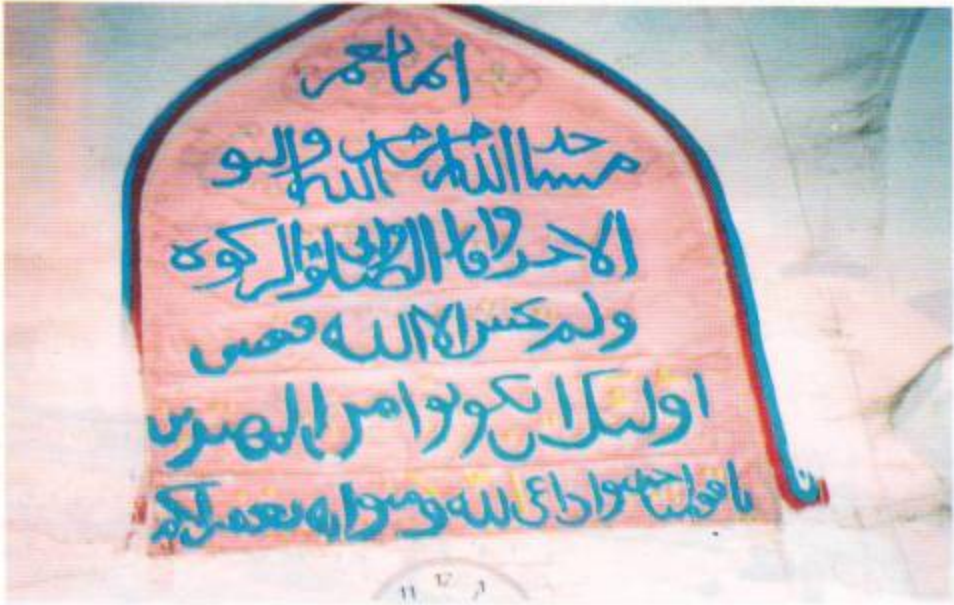 انما يعمر
مسجد الله من امن بالله واليو
الاخر واقام الصلوة واتى الزكوة
ولم يخش الا الله فعسى
اولئك ان يكونوا من المهتدين
يا قومنا اجيبوا داعي الله وامنوا به يغفر لكم
11 12 1